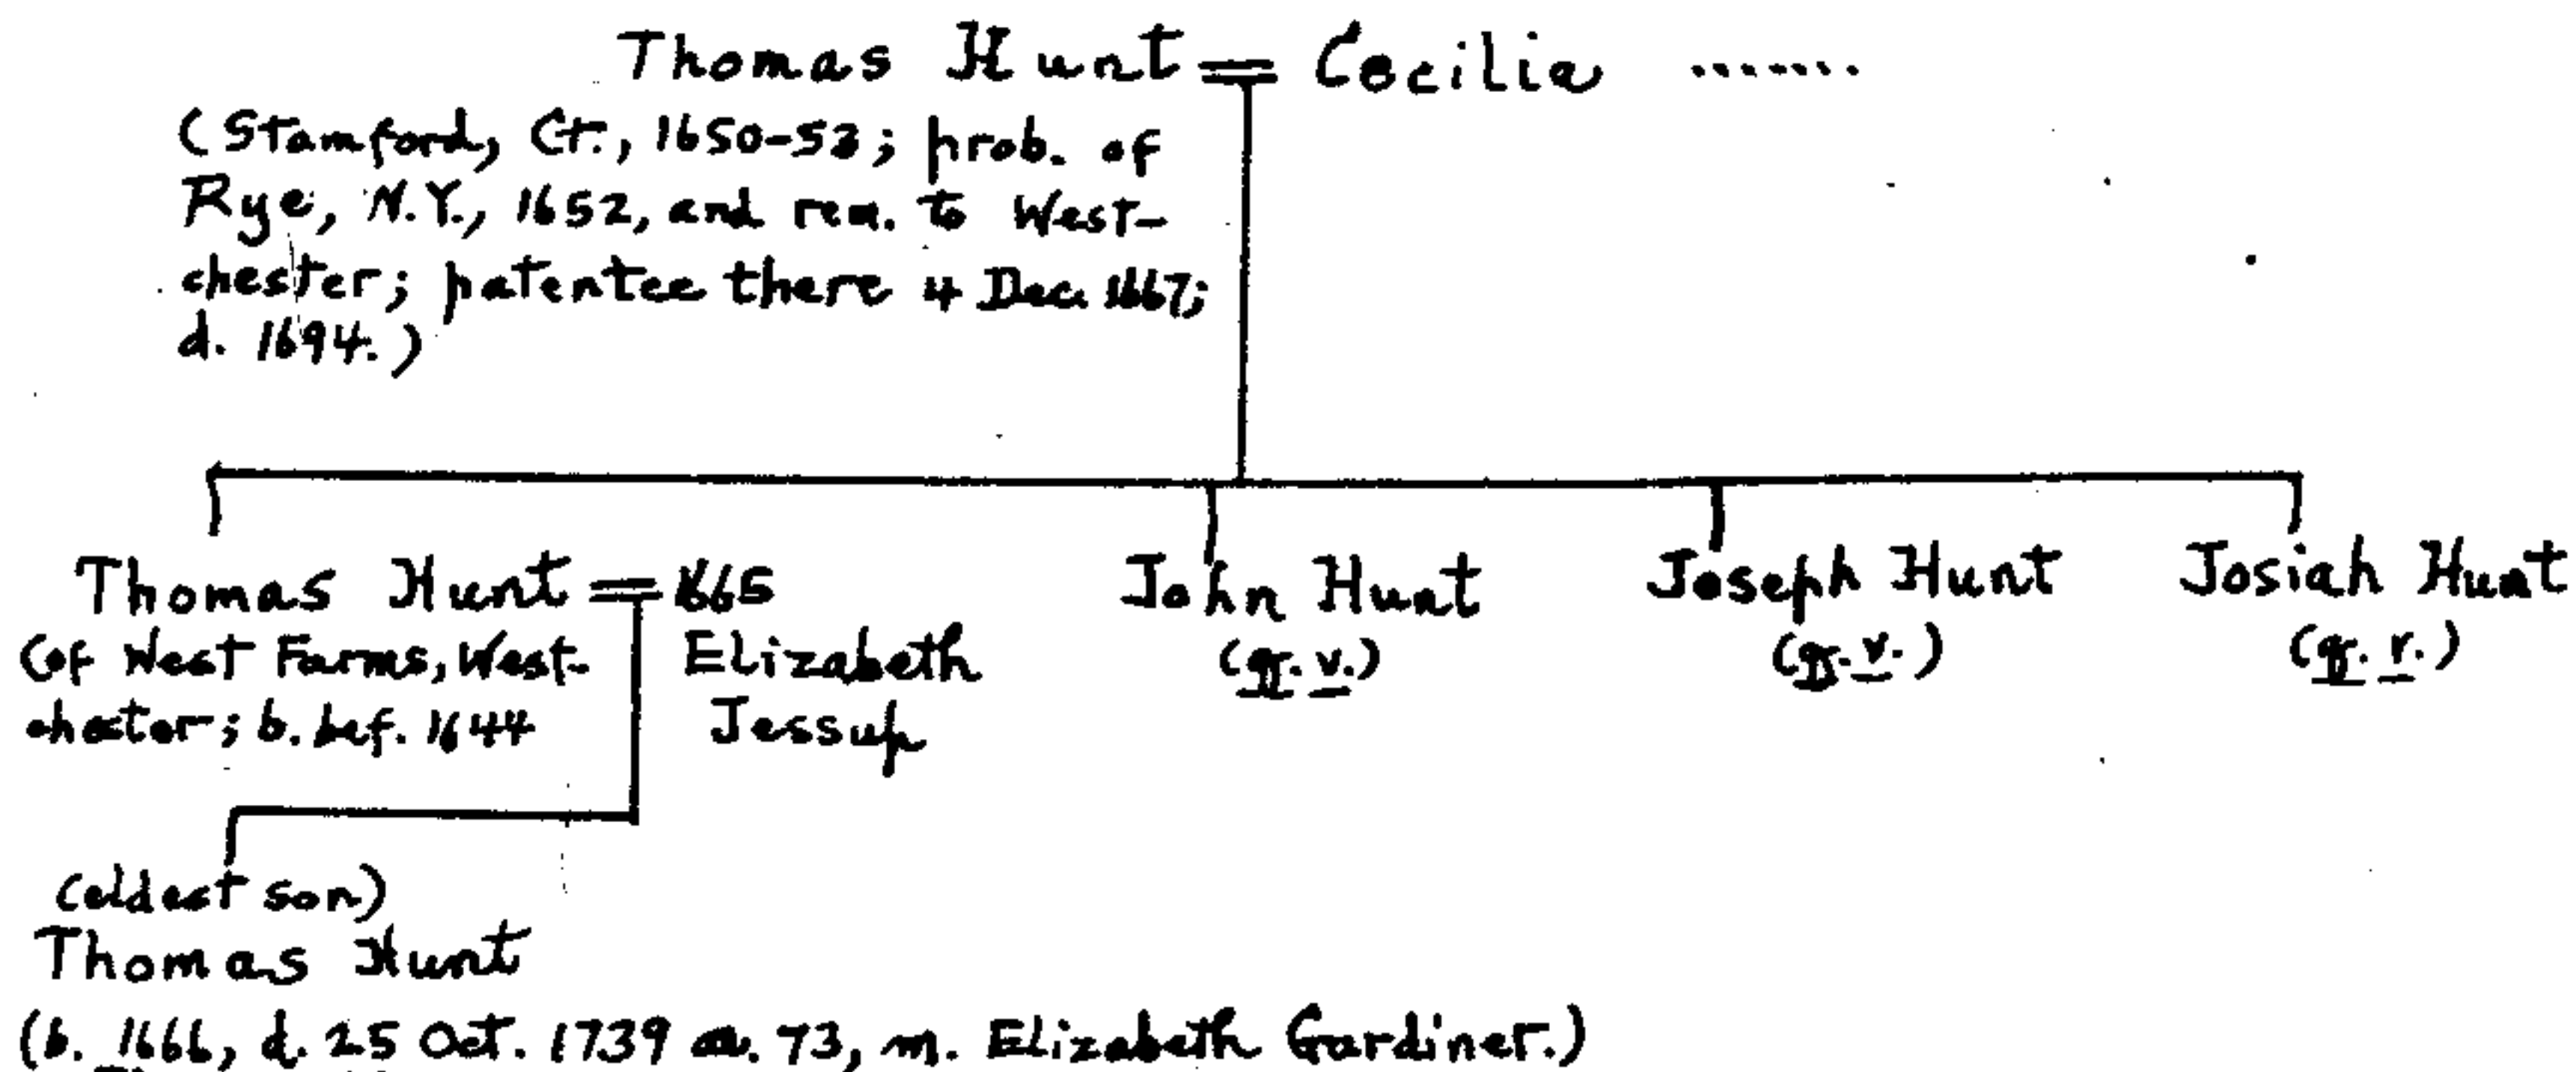 Thomas Hunt = Cecilia .......
(Stamford, Ct., 1650-53; prob. of
Rye, N.Y., 1652, and rem. to West-
chester; patentee there 4 Dec. 1667;
d. 1694.)
Thomas Hunt = 1665
(of West Farms, West-
chester; b. bef. 1644
Elizabeth
Jessup
John Hunt
(q. v.)
Joseph Hunt
(q. v.)
Josiah Hunt
(q. v.)
(eldest son)
Thomas Hunt
(b. 1666, d. 25 Oct. 1739 æ. 73, m. Elizabeth Gardiner.)